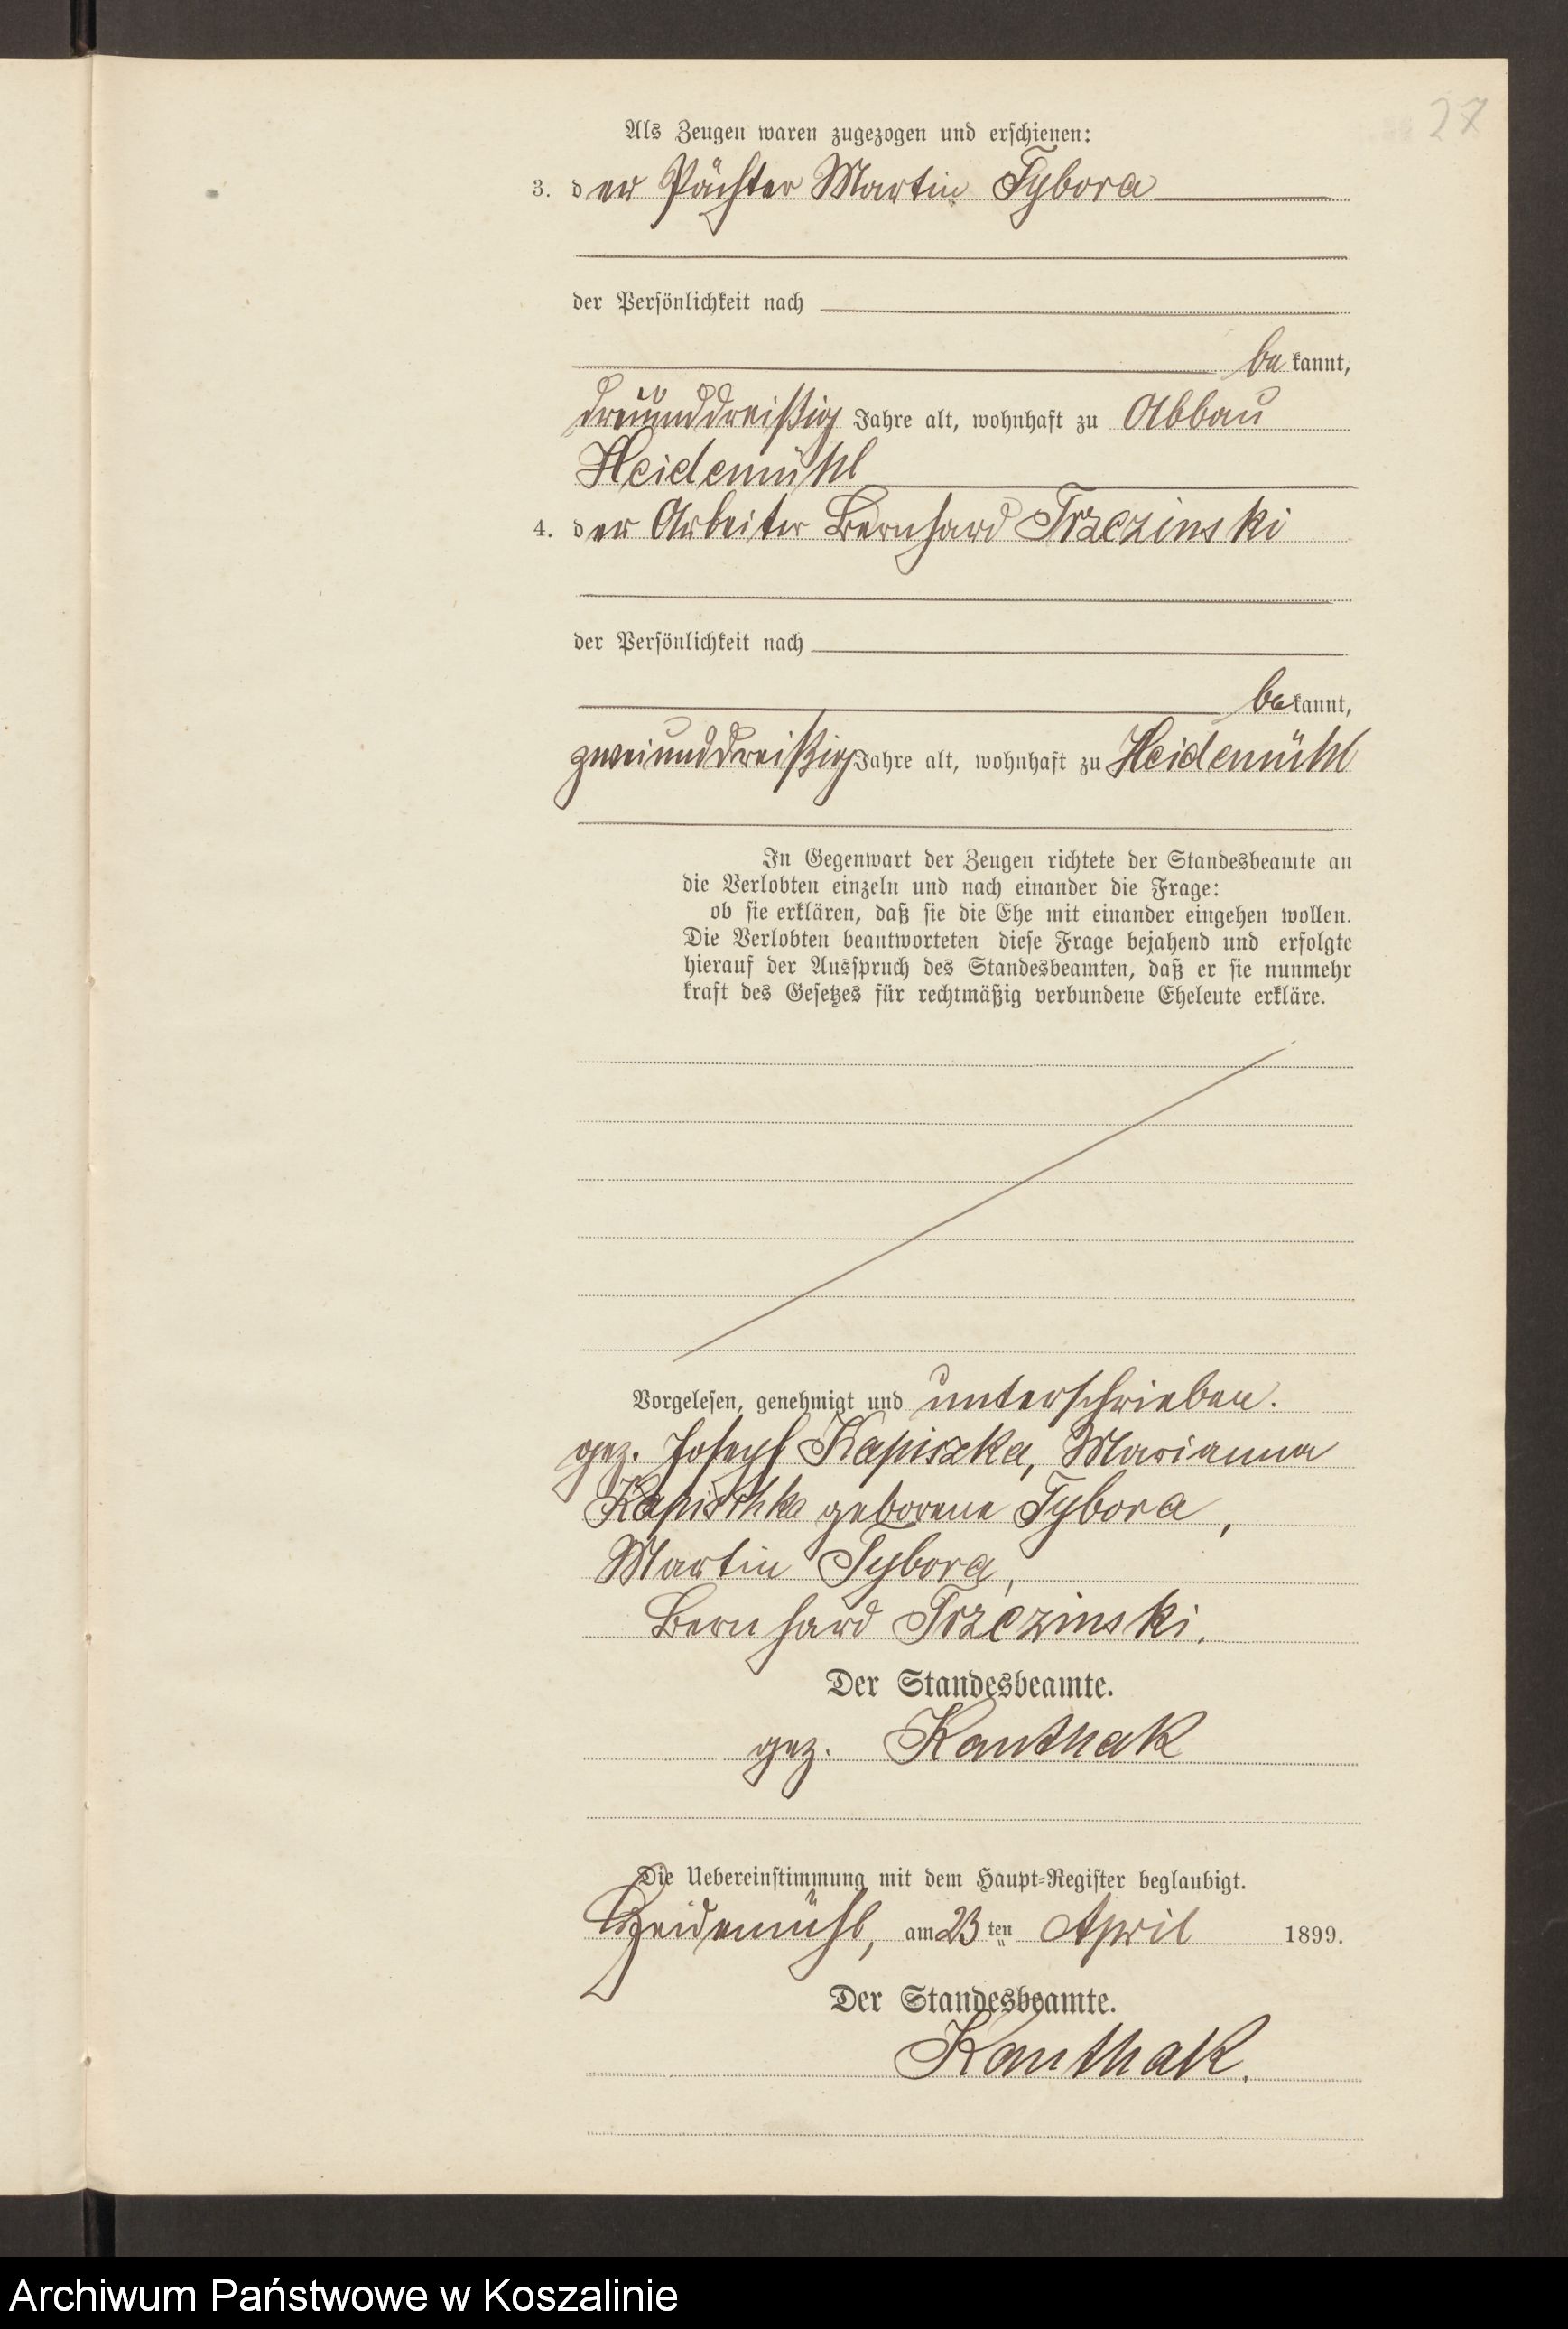 27
Als Zeugen waren zugezogen und erschienen:
3. der Pächter Martin Tybora
der Persönlichkeit nach
bekannt,
dreiunddreißig Jahre alt, wohnhaft zu Abbau
Heidemühl
4. der Arbeiter Bernhard Trzezinski
der Persönlichkeit nach
bekannt,
zweiunddreißig Jahre alt, wohnhaft zu Heidemühl
In Gegenwart der Zeugen richtete der Standesbeamte an
die Verlobten einzeln und nach einander die Frage:
ob sie erklären, daß sie die Ehe mit einander eingehen wollen.
Die Verlobten beantworteten diese Frage bejahend und erfolgte
hierauf der Ausspruch des Standesbeamten, daß er sie nunmehr
kraft des Gesetzes für rechtmäßig verbundene Eheleute erkläre.
Vorgelesen, genehmigt und unterschrieben.
gez. Joseph Kapiszka, Marianna
Kapischka geborene Tybora,
Martin Tybora,
Bernhard Trzezinski.
Der Standesbeamte.
gez. Kanthak
Die Uebereinstimmung mit dem Haupt-Register beglaubigt.
Heidemühl, am 23ten April 1899.
Der Standesbeamte.
Kanthak.
Archiwum Państwowe w Koszalinie